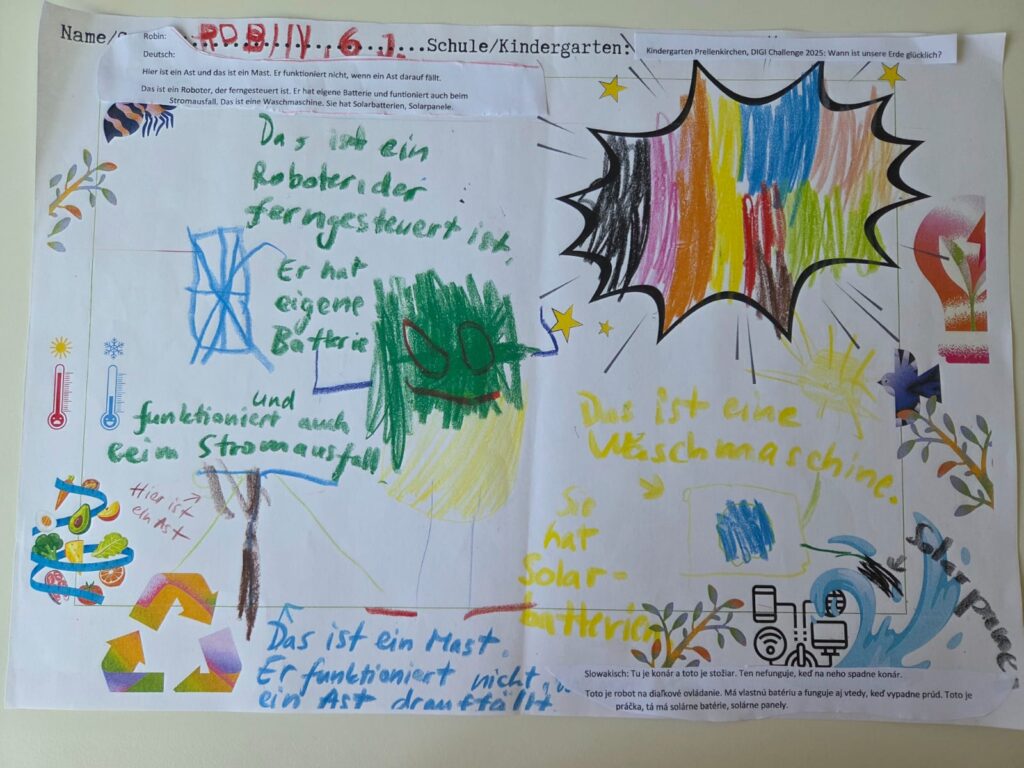 Name/
ROBIN, 6 J.
Schule/Kindergarten:
Robin:
Deutsch:
Hier ist ein Ast und das ist ein Mast. Er funktioniert nicht, wenn ein Ast darauf fällt.
Das ist ein Roboter, der ferngesteuert ist. Er hat eigene Batterie und funtioniert auch beim
Stromausfall. Das ist eine Waschmaschine. Sie hat Solarbatterien, Solarpanele.
Kindergarten Prellenkirchen, DIGI Challenge 2025: Wann ist unsere Erde glücklich?
Das ist ein
Roboter, der
ferngesteuert ist.
Er hat
eigene
Batterie
und
funktioniert auch
beim Stromausfall
Hier ist
ein Ast
Das ist ein Mast.
Er funktioniert nicht,
ein Ast drauffällt
Das ist eine
Waschmaschine.
Sie
hat
Solar-
batterien
Solarpanele
Slowakisch: Tu je konár a toto je stožiar. Ten nefunguje, keď na neho spadne konár.
Toto je robot na diaľkové ovládanie. Má vlastnú batériu a funguje aj vtedy, keď vypadne prúd. Toto je
práčka, tá má solárne batérie, solárne panely.